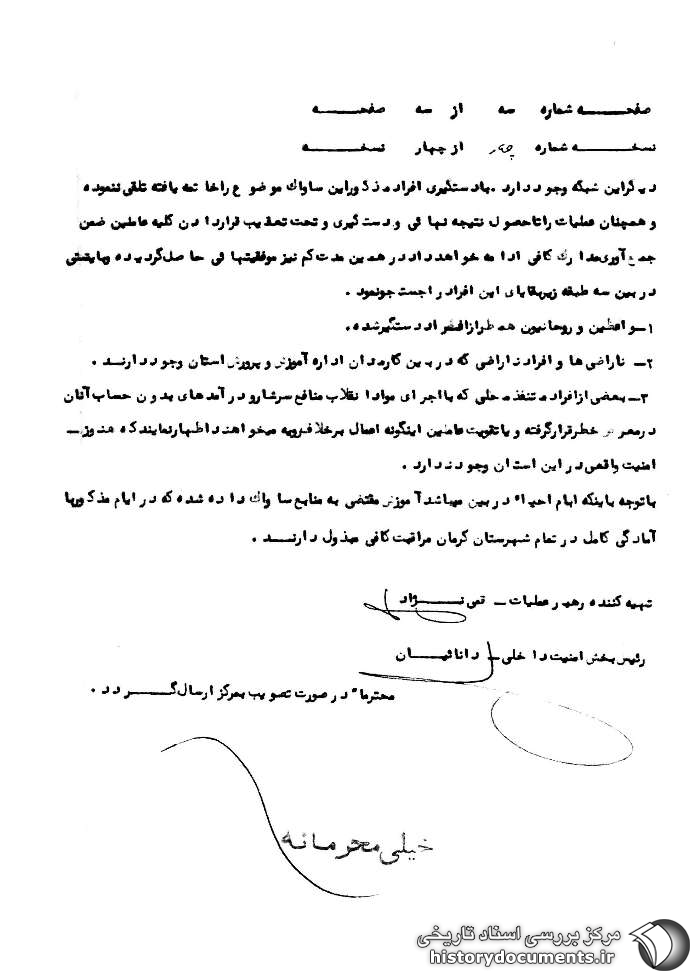 صفحه شماره سه از سه صفحه
نسخه شماره چهار از چهار نسخه
دیگر این شبکه وجود دارد . با دستگیری افراد مذکور این ساواک موضوع را خاتمه یافته تلقی ننموده
و همچنان عملیات را تا حصول نتیجه نهائی و دستگیری و تحت تعقیب قرار دادن کلیه عاملین ضمن
جمع آوری مدارک کافی ادامه خواهد داد در همین مدت کم نیز موفقیتهائی حاصل گردیده و بایستی
در بین سه طبقه زیر بقایای این افراد را جستجو نمود .
۱- واعظین و روحانیون همطراز افراد دستگیر شده .
۲- ناراضی ها و افراد ناراضی که در بین کارمندان اداره آموزش و پرورش استان وجود دارند .
۳- بعضی از افراد متنفذ محلی که با اجرای مواد انقلاب منافع سرشار و درآمدهای بدون حساب آنان
در معرض خطر قرار گرفته و با تقویت عاملین اینگونه اعمال برخلاف رویه میخواهند اظهار نمایند که هنوز
امنیت واقعی در این استان وجود ندارد .
با توجه باینکه ایام احیاء در بین میباشد آموزش مقتضی به منابع ساواک داده شده که در ایام مذکور با
آمادگی کامل در تمام شهرستان کرمان مراقبت کافی مبذول دارند .
تهیه کننده رهبر عملیات - تقی نژاد
رئیس بخش امنیت داخلی - دانائیان
محترماً در صورت تصویب بمرکز ارسال گردد .
خیلی محرمانه
مرکز بررسی اسناد تاریخی
historydocuments.ir